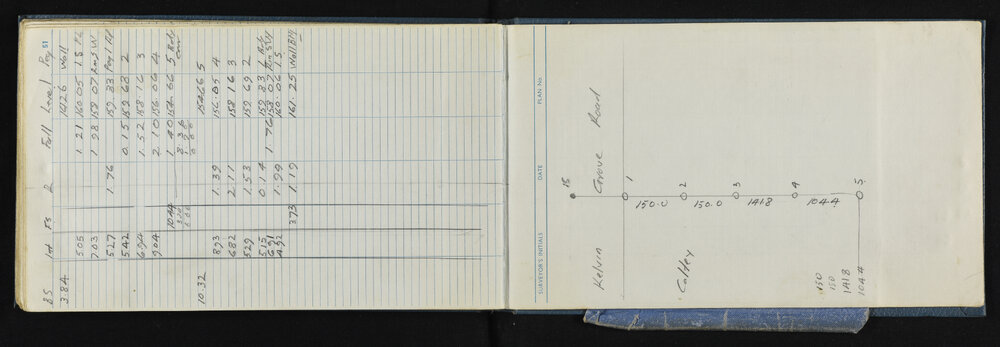 BS Int FS R Fall Level Peg 51
3.84 Wall
5.05 1.21 160.05 15
7.03 1.98 158.07
5.27 1.76 159.83 Peg 1
5.42 0.15 159.68 2
6.94 1.52 158.16 3
9.04 2.10 156.06 4
10.44 1.40 154.66 5
10.32 154.66 5
8.93 1.39 156.05 4
6.82 2.11 158.16 3
5.29 1.53 159.69 2
5.15 0.14 159.83 1
6.91 1.76 158.07
4.92 1.99 160.06 15
3.73 1.19 161.25 Wall BM
SURVEYOR'S INITIALS DATE PLAN No.
Kelvin Grove Road
15
1
150.0
2
150.0
3
141.8
4
104.4
5
150
150
141.8
104.4